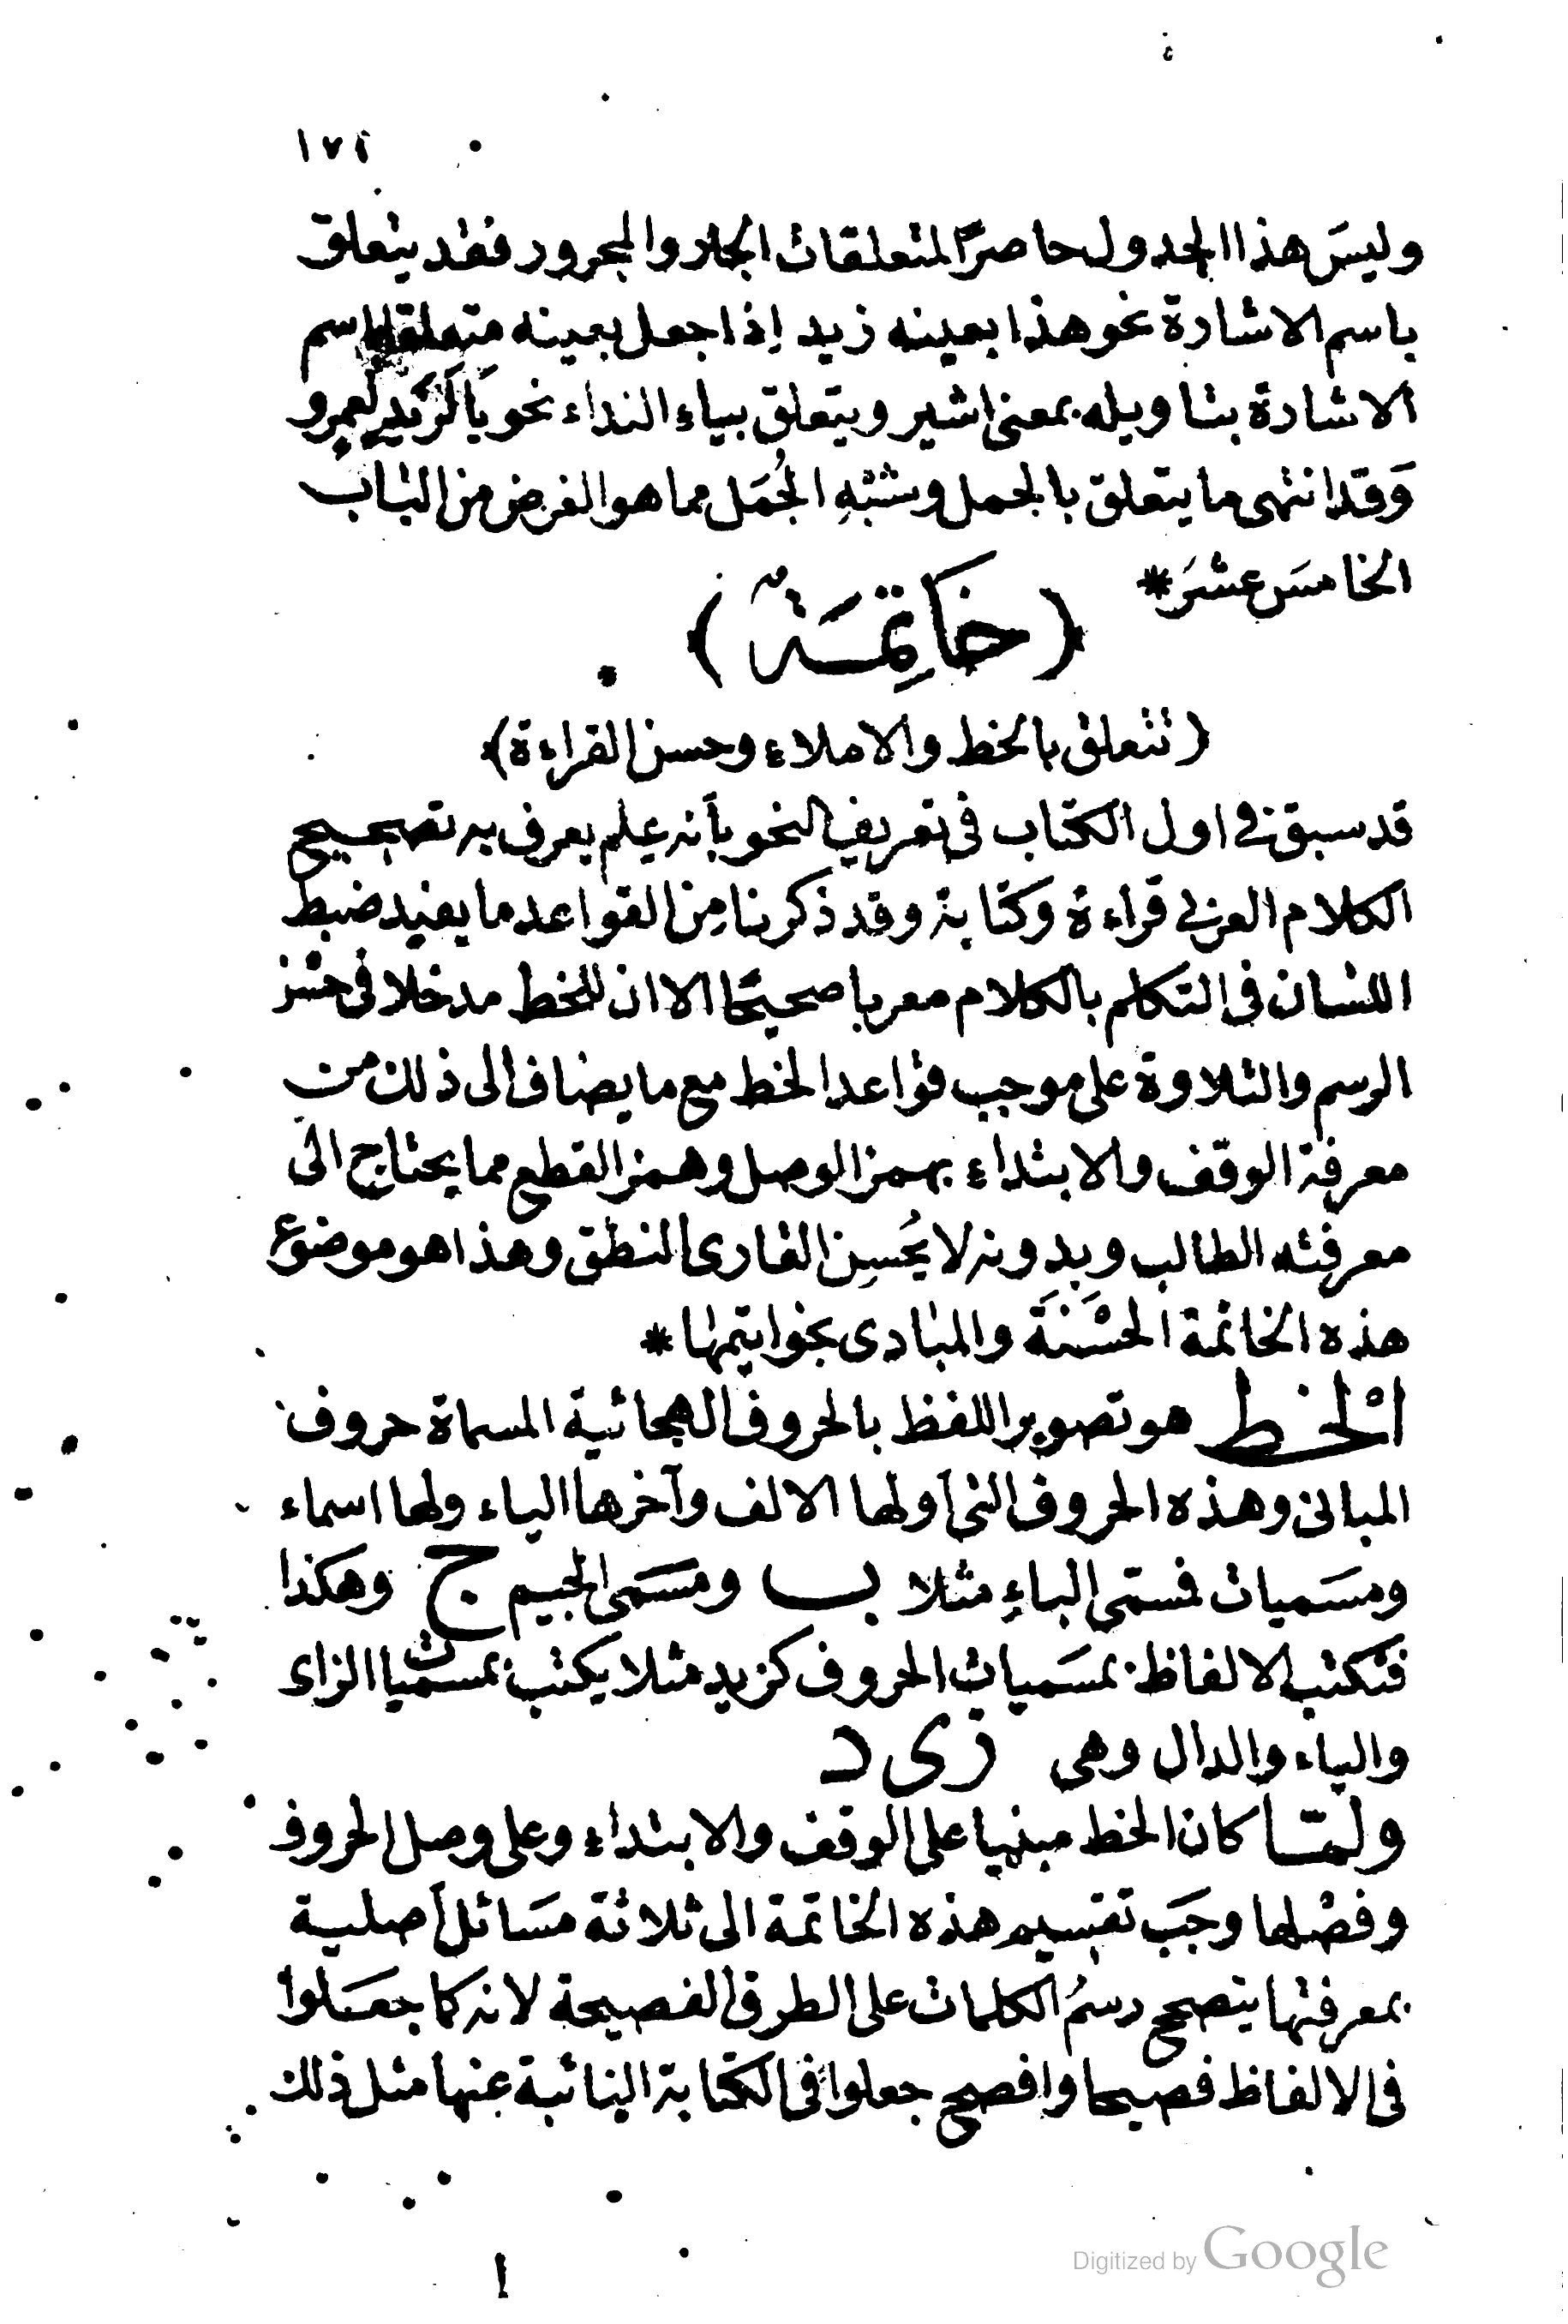 ١٧١
وليسَ هذا الجدول حاصرًا لمتعلقات الجار والمجرور فقد يتعلق
باسم الاشارة نحو هذا بعينه زيد إذا جعل بعينه متعلقا باسم
الاشارة بتاويله بمعنى اشير ويتعلق بياء النداء نحو يَا لَزَيدٍ لِعمرو
وَقد انتهى ما يتعلق بالجمل وشبْهِ الجُمَل مما هو الغرض من الباب
الخامسَ عشرَ *
(خَاتِمَةٌ)
(تتعلق بالخط والاملاء وحسن القراءة)
قد سبق في اول الكتاب في تعريف النحو بأنه عِلم يعرف به تصحيح
الكلام العربي قراءة وكتابة وقد ذكرنا مِن القواعد ما يفيد ضبط
اللسان في التكلم بالكلام معربا صحيحًا الا ان للخط مدخلا في حسْن
الرسم والتلاوة على موجب قواعد الخط مع ما يضاف الى ذلك من
معرفة الوقف والابتداء بهمز الوصل وهمز القطع مما يحتاج الى
معرفته الطالب وبدونه لا يُحسِن القارى النطق وهذا هو موضوع
هذه الخاتمة الحسَنَة والمبادى بخواتيمها *
الْخط هو تصوير اللفظ بالحروف الهجائية المسماة حروف
المبانى وهذه الحروف التى أولها الالف وآخرها الياء ولها اسماء
ومسَميات فمسمى الباءِ مثلا ب ومسَمى الجيم ج وهكذا
فتكتب الالفاظ بمسَميات الحروف كزيد مثلا يكتب بمسميات الزاى
والياء والدال وهى زى د
ولمّا كان الخط مبنيا على الوقف والابتداء وعلى وصل الحروف
وفصْلها وجَب تقسيم هذه الخاتمة الى ثلاثة مسَائل أصلية
بمعرفتها يتصحح رسمُ الكلمات على الطرق الفصيحة لانه كما جعَلوا
فى الالفاظ فصيحا وافصح جعلوا فى الكتابة النائبة عنها مثل ذلك
Digitized by Google